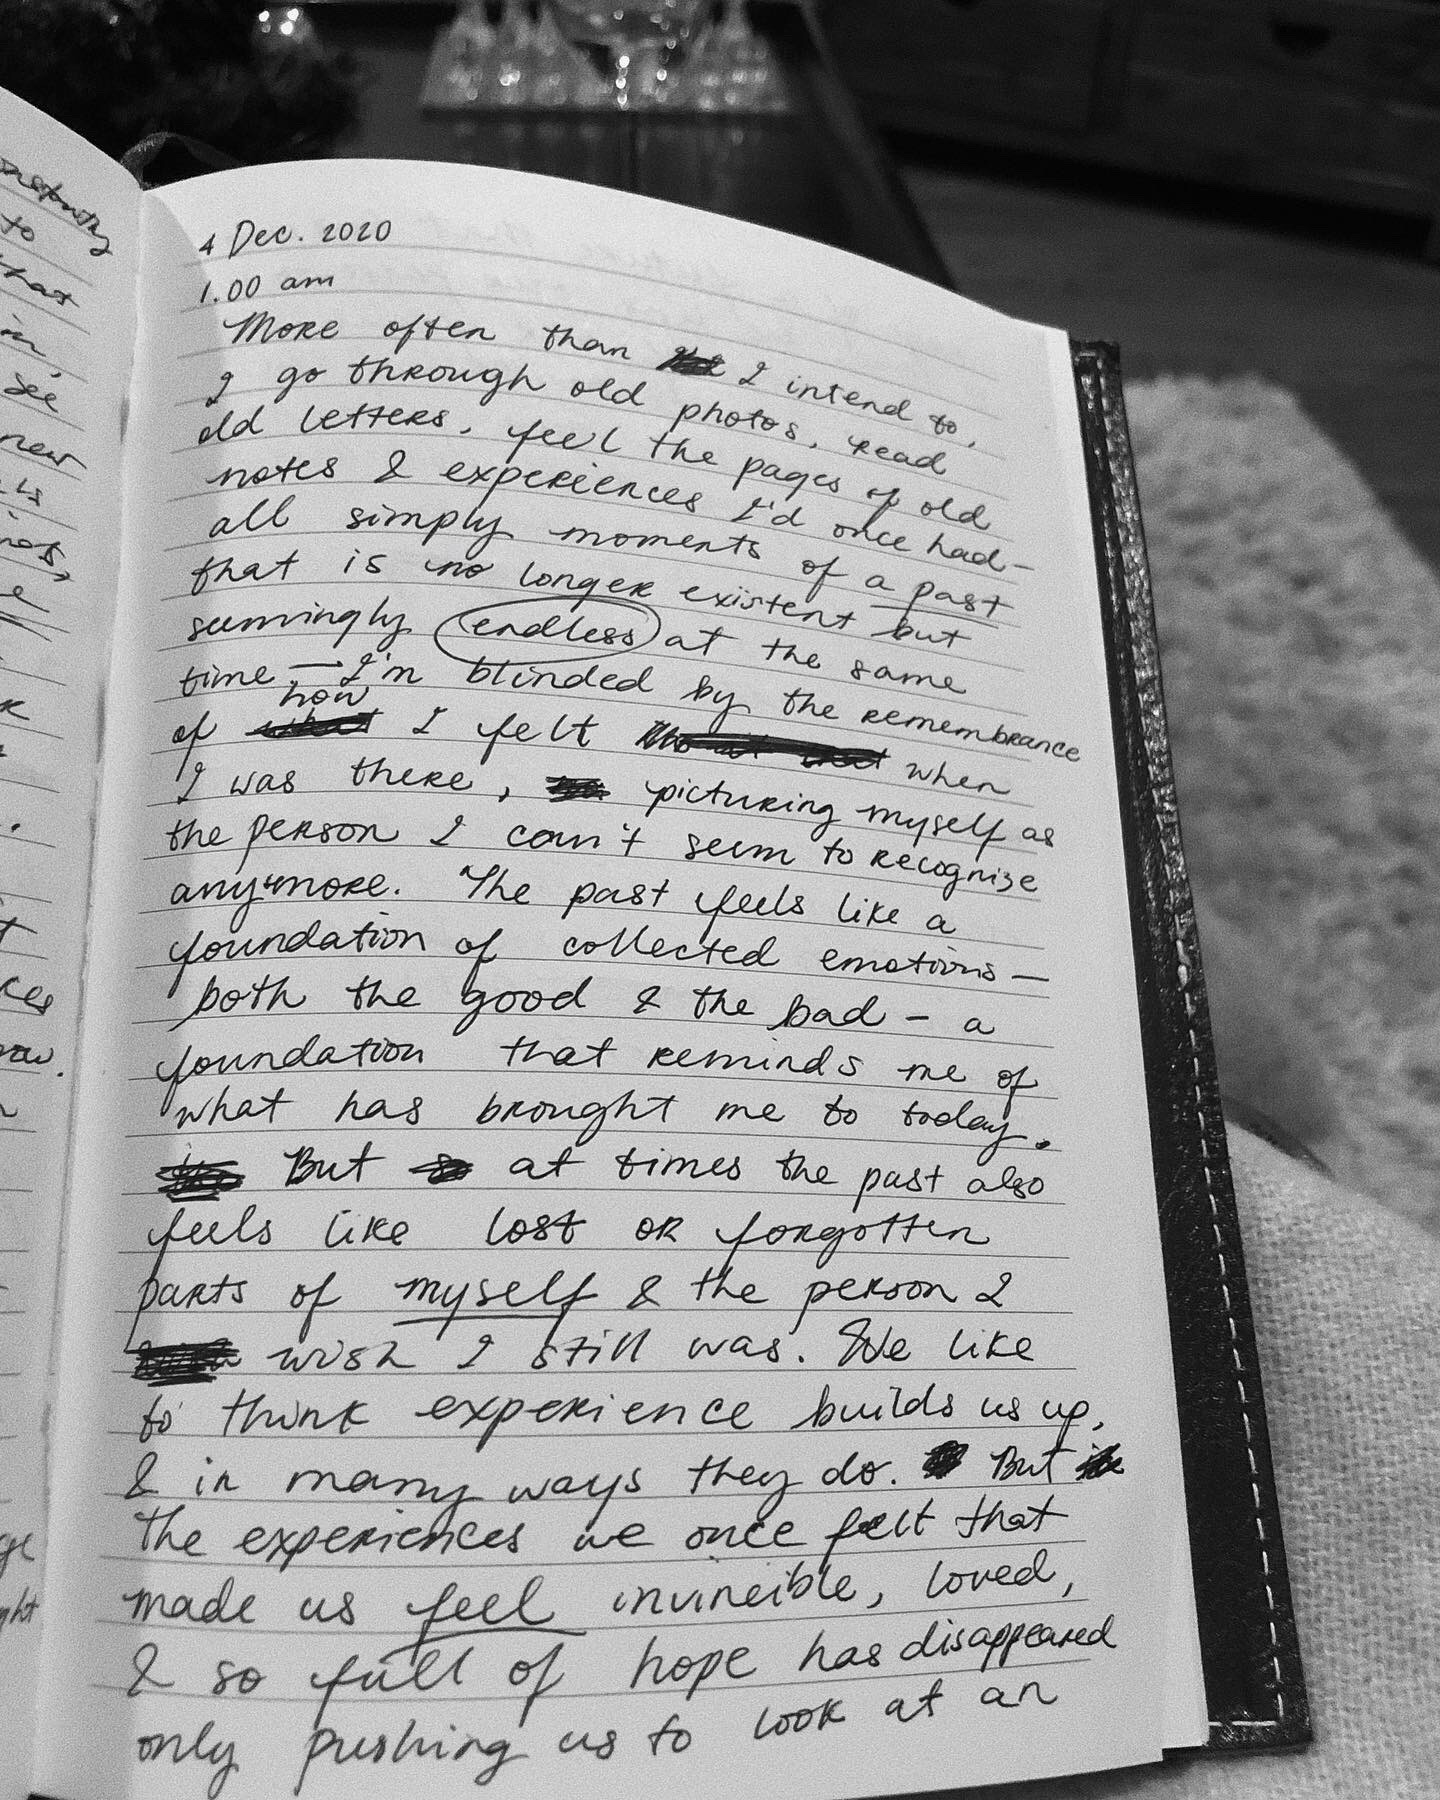 4 Dec. 2020
1.00 am
More often than I intend to,
I go through old photos, read
old letters, feel the pages of old
notes & experiences I'd once had—
all simply moments of a past
that is no longer existent but
seemingly endless at the same
time — I'm blinded by the remembrance
how
of what I felt when
I was there, picturing myself as
the person I can't seem to recognize
anymore. The past feels like a
foundation of collected emotions—
both the good & the bad – a
foundation that reminds me of
what has brought me to today.
But at times the past also
feels like lost or forgotten
parts of myself & the person I
wish I still was. We like
to think experience builds us up,
& in many ways they do. But
the experiences we once felt that
made us feel invincible, loved,
& so full of hope has disappeared
only pushing us to look at an
to
that
in,
see
new
is
e